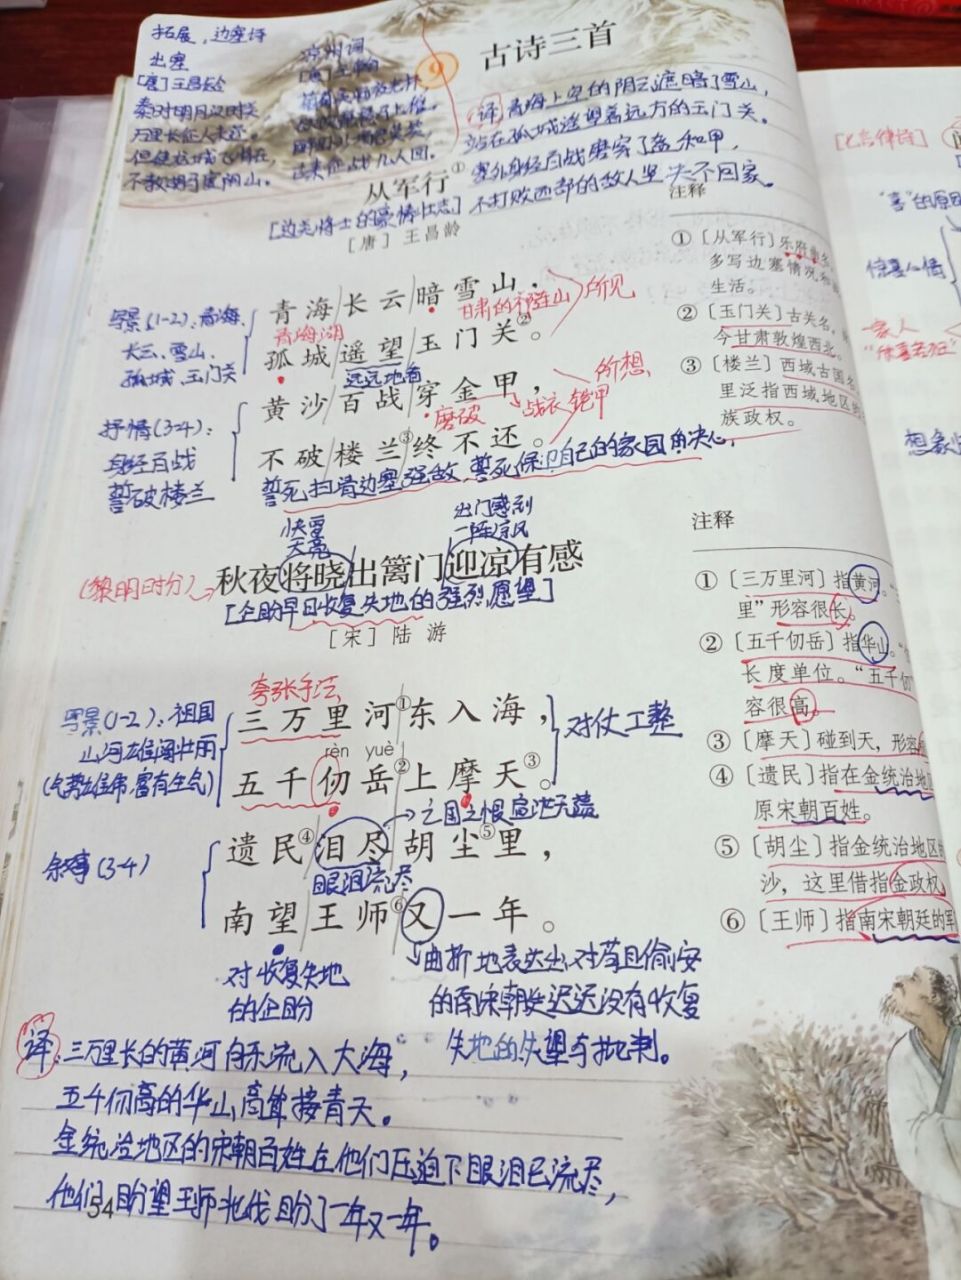 拓展，边塞诗
出塞
[唐]王昌龄
秦时明月汉时关
万里长征人未还。
但使龙城飞将在，
不教胡马度阴山。
凉州词
[唐]王翰
古来征战几人回。
9
古诗三首
译 青海上空的阴云遮暗了雪山，
站在孤城遥望着远方的玉门关。
塞外身经百战磨穿了盔和甲，
不打败西部的敌人坚决不回家。
从军行①
[边关将士的豪情壮志]
[唐] 王昌龄
写景(1-2)：青海、
长云、雪山、
孤城、玉门关
青海长云暗雪山，
青海湖
甘肃的祁连山
所见
孤城遥望玉门关②。
远远地看
抒情(3-4)：
身经百战
誓破楼兰
黄沙百战穿金甲，
磨破
战衣 铠甲
所想
不破楼兰③终不还。
誓死扫清边塞强敌，誓死保卫自己的家园的决心。
注释
①〔从军行〕乐府
多写边塞情况和
生活。
②〔玉门关〕古关名，
今甘肃敦煌西北。
③〔楼兰〕西域古国名
里泛指西域地区的
族政权。
快要
天亮
出门感到
一阵凉风
(黎明时分)
秋夜将晓出篱门迎凉有感
[企盼早日收复失地的强烈愿望]
[宋] 陆 游
写景(1-2)：祖国
山河雄阔壮丽
(气势雄伟，富有生气)
夸张手法
三万里河①东入海，
rèn yuè
五千仞岳②上摩天③。
对仗工整
叙事(3-4)
亡国之恨宣泄无疑
遗民④泪尽胡尘⑤里，
眼泪流尽
南望王师⑥又一年。
对收复失地
的企盼
曲折地表达出，对苟且偷安
的南宋朝廷迟迟没有收复
失地的失望与批判。
注释
①〔三万里河〕指黄河。
里”形容很长。
②〔五千仞岳〕指华山。
长度单位。“五千仞”
容很高。
③〔摩天〕碰到天，形容
④〔遗民〕指在金统治地
原宋朝百姓。
⑤〔胡尘〕指金统治地区的
沙，这里借指金政权
⑥〔王师〕指南宋朝廷的军
译：三万里长的黄河向东流入大海，
五千仞高的华山高耸接青天。
金统治地区的宋朝百姓在他们压迫下眼泪已流尽，
他们盼望王师北伐盼了一年又一年。
54
[七言律诗]
“喜”的原因
惊喜心情
家人
“惊喜若狂”